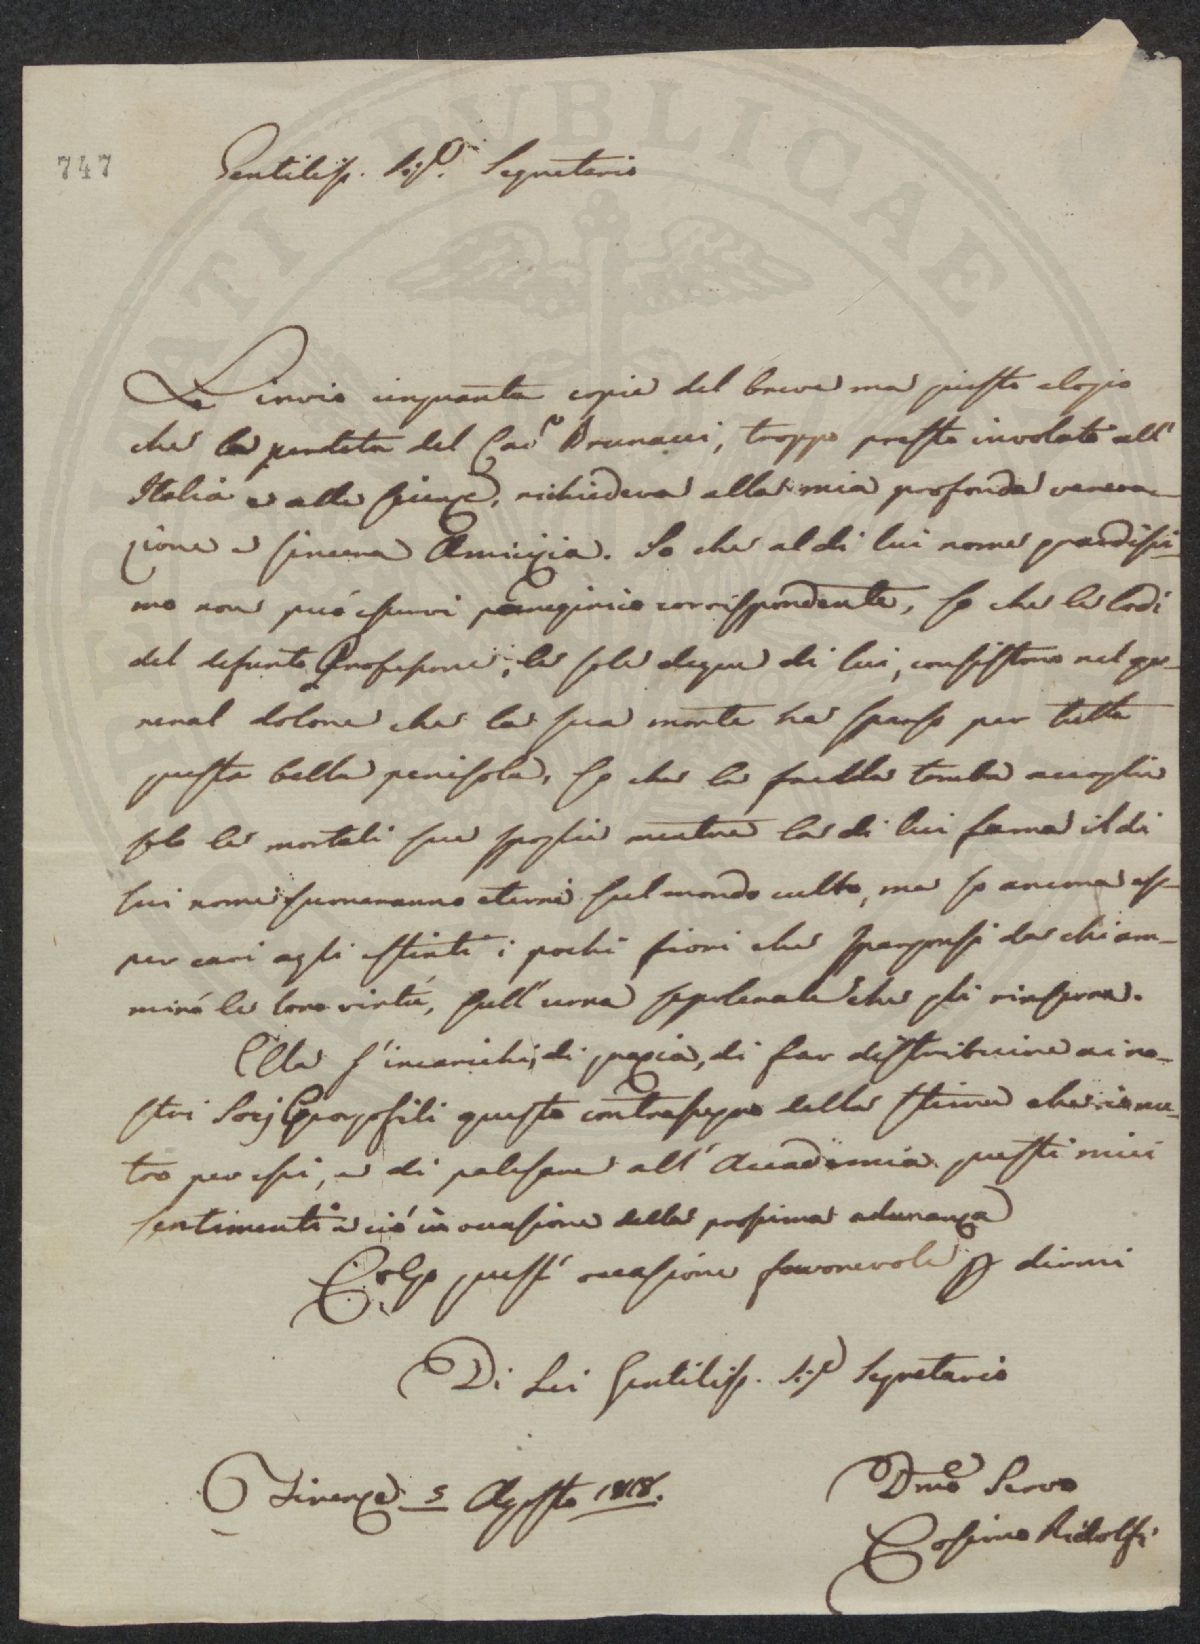 747
Gentiliss. Sig.e Segretario
Le invio cinquanta copie del breve ma giusto elogio
che la perdita del Cav.e Brunacci, troppo presto involato all'
Italia e alle scienze, richiedeva alla mia profonda venera-
zione e sincera Amicizia. So che al di lui nome grandissi-
mo non può esservi panegirico corrispondente, so che le lodi
del defunto Professore, le sole degne di lui, consistono nel ge-
neral dolore che la sua morte ha sparso per tutta
questa bella penisola, so che la fredda tomba accoglie
solo le mortali sue spoglie mentre la di lui fama il di
lui nome suoneranno eterni sul mondo culto, ma so ancora es-
ser cari agli estinti i pochi fiori che spargonsi da chi am-
mirò le loro virtù, sull'urna sepolcrale che gli rinserra.
Ella s'incarichi, di grazia, di far distribuire ai no-
stri Socj Georgofili questo contrassegno della stima che io nu-
tro per essi, e di palesare all'Accademia questi miei
sentimenti e ciò in occasione della prossima adunanza
Colgo quest'occasione favorevole p dirmi
Di Lei Gentiliss. Sig.e Segretario
Firenze 5 Agosto 1818.
Dmo Servo
Cosimo Ridolfi
PUBLICAE